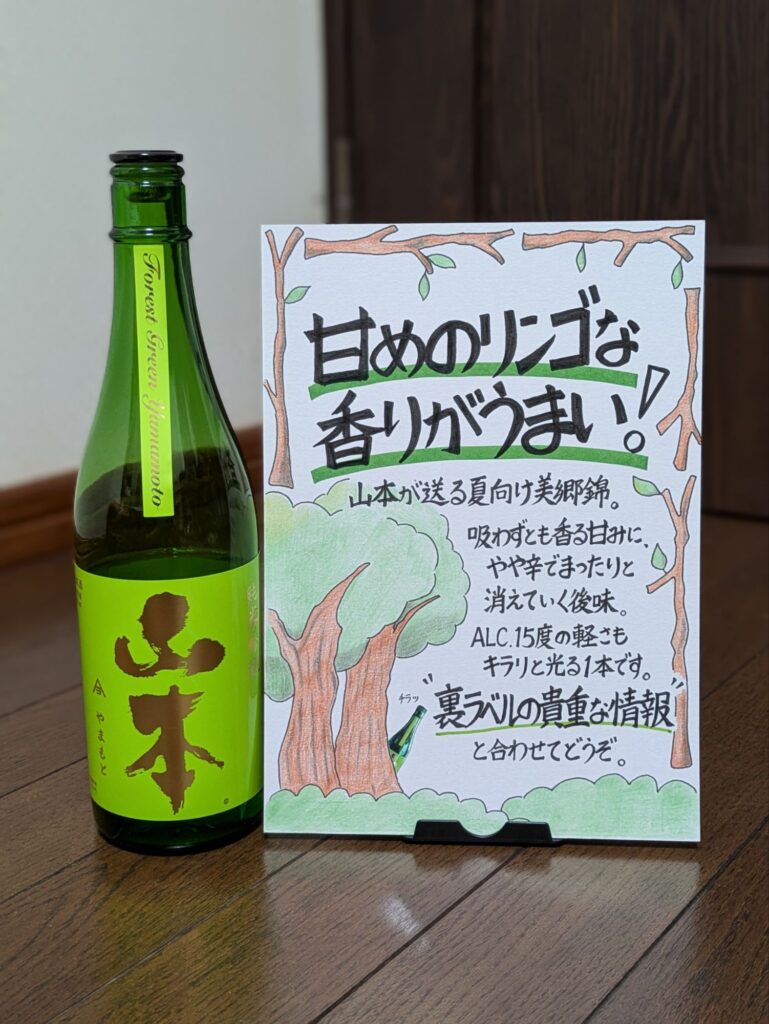 Forest Green Yamamoto
山本
やまもと
甘めのリンゴな
香りがうまい。!
山本が送る夏向け美郷錦。
吸わずとも香る甘みに、
やや辛でまったりと
消えていく後味。
ALC.15度の軽さも
キラリと光る1本です。
チラッ
"裏ラベルの貴重な情報"
と合わせてどうぞ。